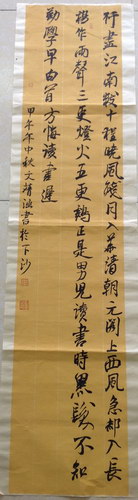 行尽江南数十程晓风残月入华清朝元阁上西风急都入长
杨作雨声三更灯火五更鸡正是男儿读书时黑发不知
勤学早白首方悔读书迟
甲午年中秋文清涵书于下沙